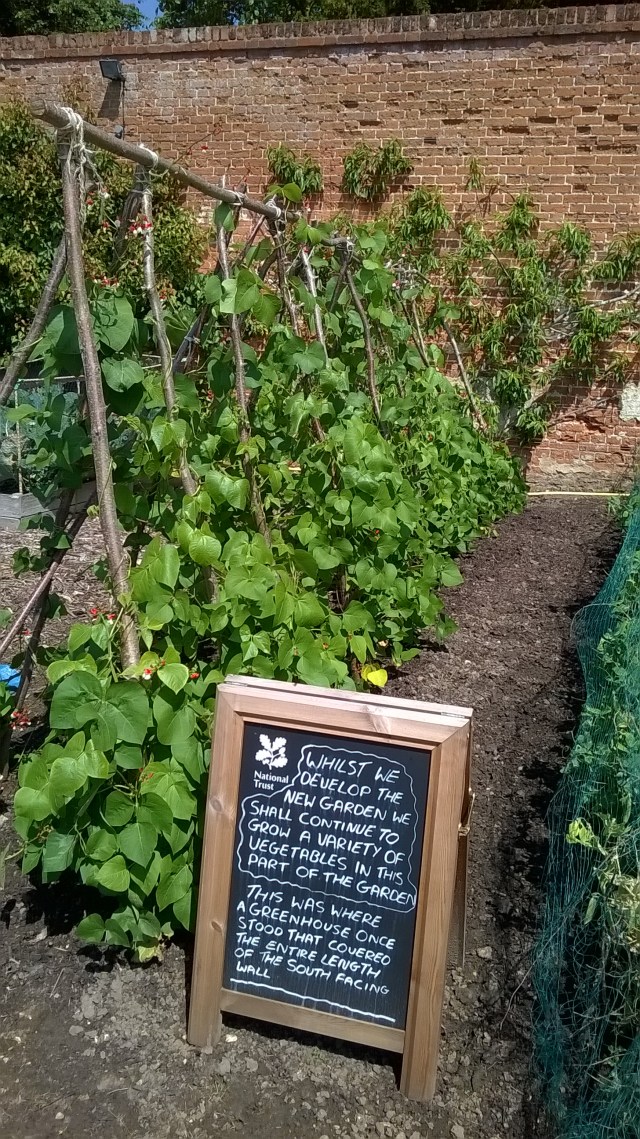 National
Trust
WHILST WE
DEVELOP THE
NEW GARDEN WE
SHALL CONTINUE TO
GROW A VARIETY OF
VEGETABLES IN THIS
PART OF THE GARDEN
THIS WAS WHERE
A GREENHOUSE ONCE
STOOD THAT COVERED
THE ENTIRE LENGTH
OF THE SOUTH FACING
WALL